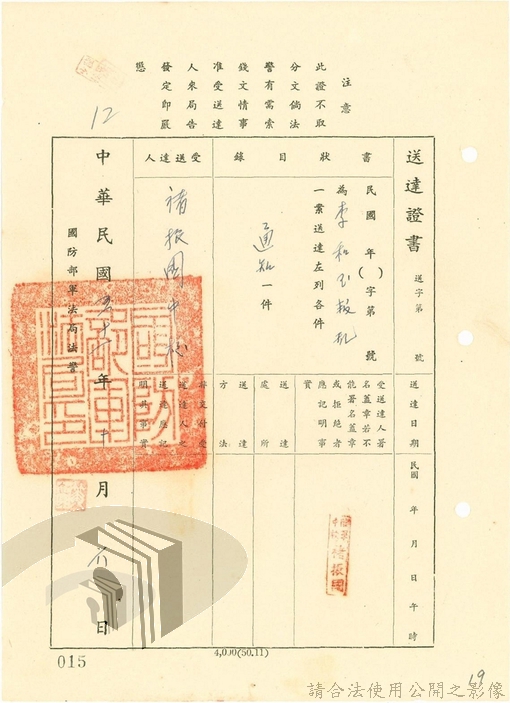 注意
此證不取
分文倘法
警有需索
錢文情事
准受送達
人來局告
發定即嚴
懲
12
送達證書 送字第 號
書狀目錄
受送達人
民國 年( )字第 號
為李和玉叛亂
一案送達左列各件
通知一件
褚振國中校
送達日期
民國 年 月 日 午 時
受送達人署
名蓋章若不
能署名蓋章
或拒絕者
應記明事
實
褚振國
送達
處所
送達
方法
送達人之
送達應記
明其事實
中華民國五十 年 十 月 六 日
國防部軍法局法警
4,000(50.11)
015
19
請合法使用公開之影像